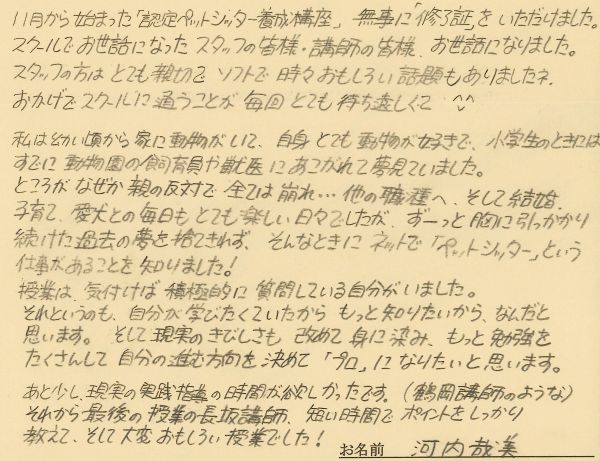 11月から始まった「認定ペットシッター養成講座」無事に「修了証」をいただけました。
スクールでお世話になったスタッフの皆様・講師の皆様、お世話になりました。
スタッフの方はとても親切でソフトで時々おもしろい話題もありましたネ。
おかげでスクールに通うことが毎回とても待ち遠しくて ^^
私は幼い頃から家に動物がいて、自身とても動物が好きで、小学生のときには
すでに動物園の飼育員や獣医にあこがれて夢見ていました。
ところがなぜか親の反対で全ては崩れ…他の職種へ、そして結婚、
子育て、愛犬との毎日もとても楽しい日々でしたが、ずーっと胸に引っかかり
続けた過去の夢を捨てきれず、そんなときにネットで「ペットシッター」という
仕事があることを知りました!
授業は、気付けば積極的に質問している自分がいました。
それというのも、自分が学びたくていたからもっと知りたいから、なんだと
思います。そして現実のきびしさも改めて身に染み、もっと勉強を
たくさんして自分の進む方向を決めて「プロ」になりたいと思います。
あと少し、現実の実践指導の時間が欲しかったです。(鶴岡講師のような)
それから最後の授業の長坂講師、短い時間でポイントをしっかり
教えて、そして大変おもしろい授業でした!
お名前 河内哉美